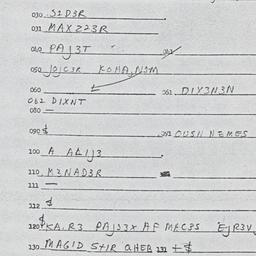 020 S1D3R
031 MAXZ23R
040 PAJ3T 041
050 JOJC3R KOHA,N3M
060 061 D1Y3N3N
062 D1XNT
080 —
090 $ 091 OUSN NEMES
100 A ALIJ3
110 M3NAD3R
111 —
112 $
120 KA.R3 PAJS3X AF MACPS EJR3V
130 MAGID S+IR QHEB 131 +$